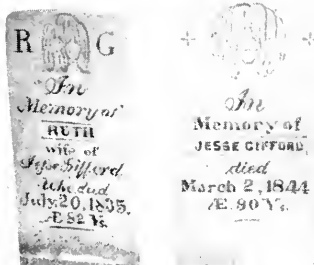 R G
In
Memory of
RUTH
wife of
Jesse Gifford
Who died
July, 20, 1835,
Æ 82 Ys.
In
Memory of
JESSE GIFFORD,
died
March 2, 1844
Æ. 90 Ys.